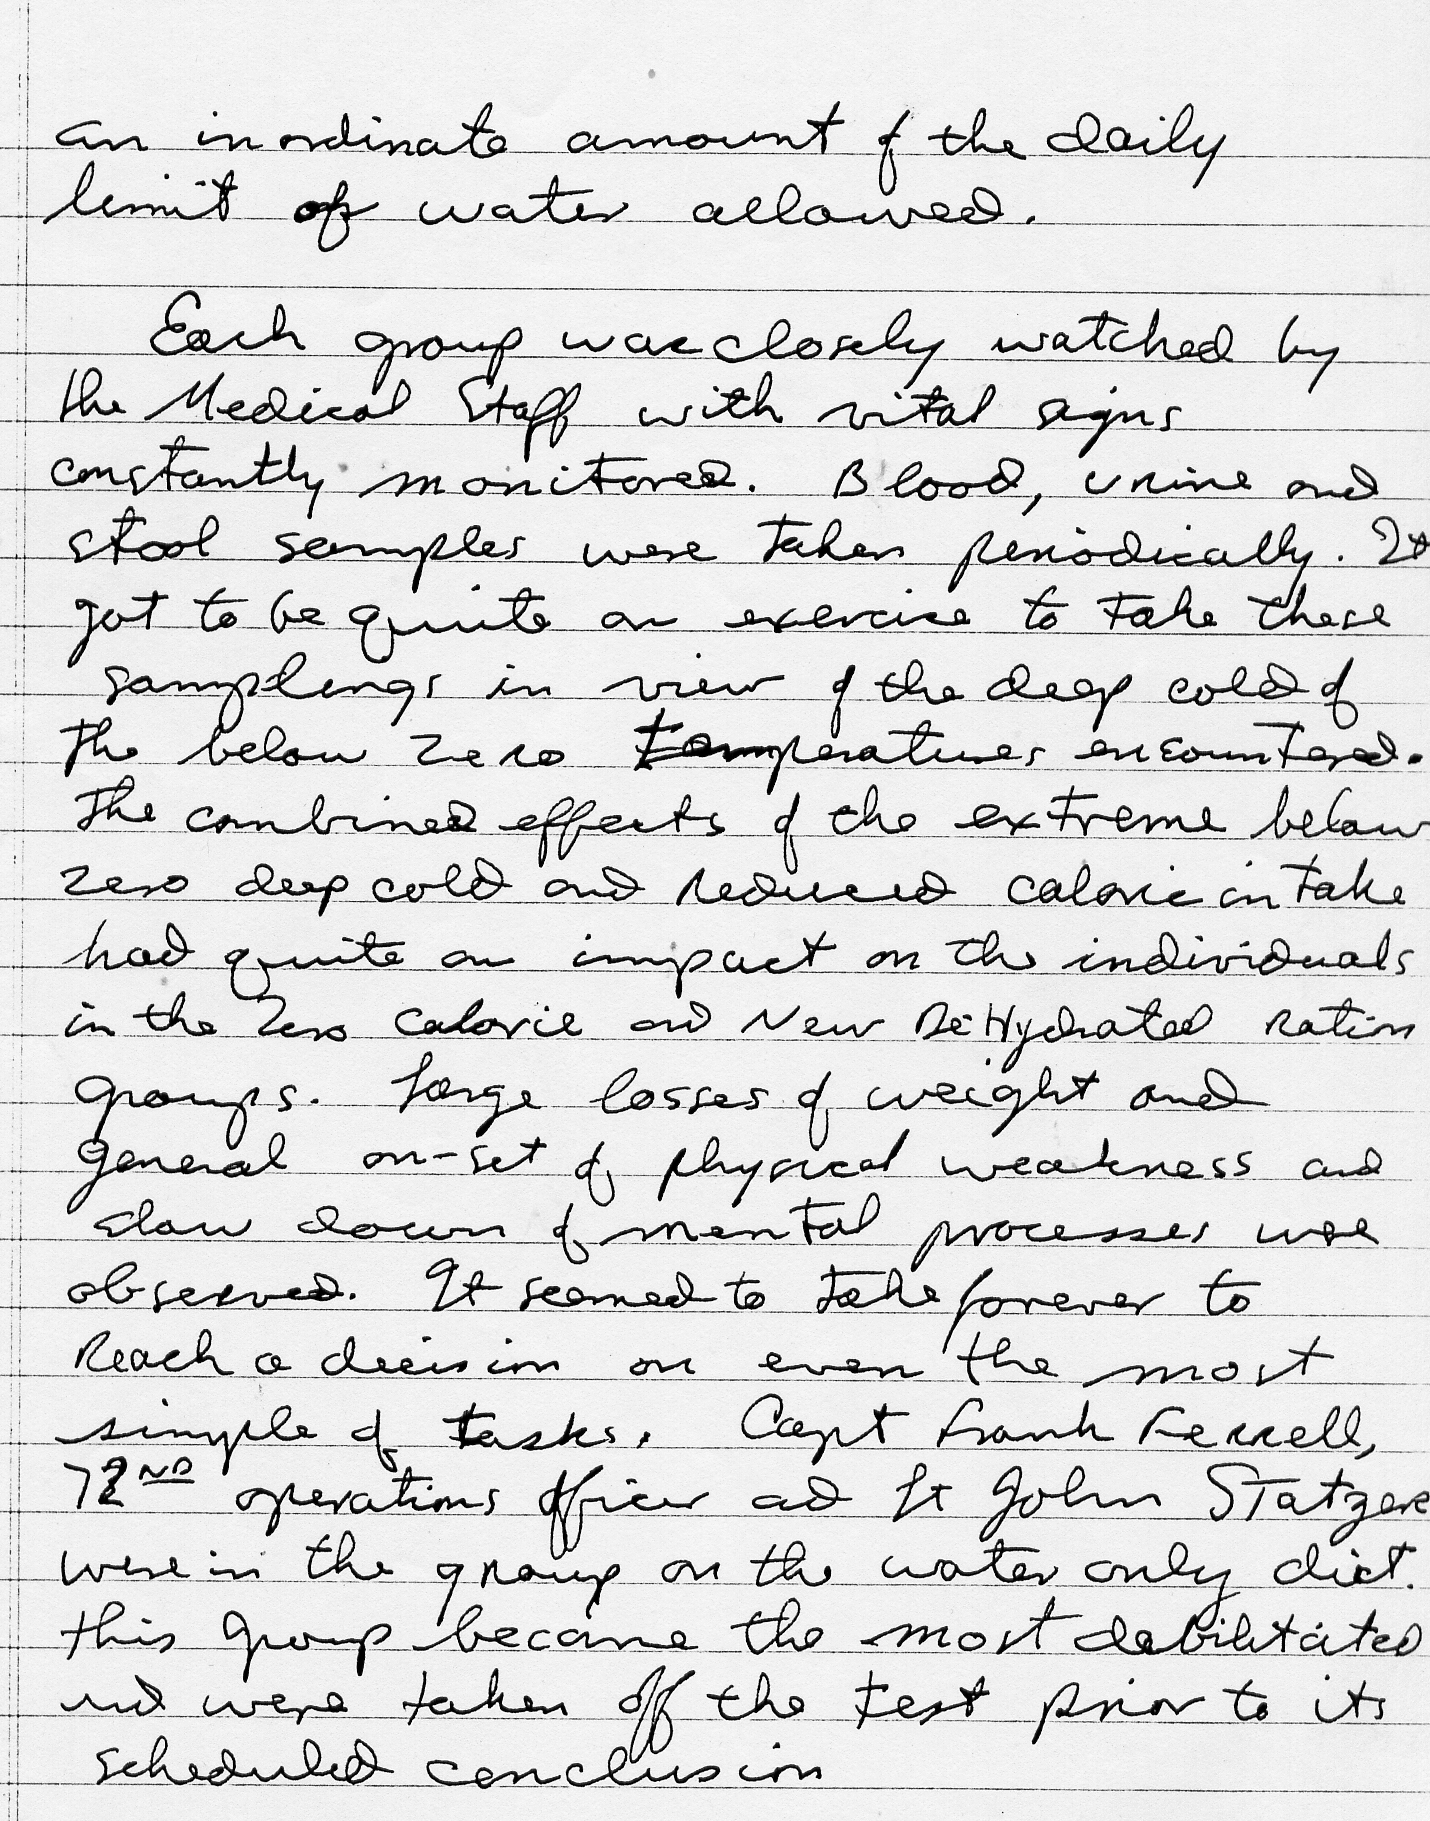 an inordinate amount of the daily
limit of water allowed.
Each group was closely watched by
the Medical Staff with vital signs
constantly monitored. Blood, urine and
stool samples were taken periodically. It
got to be quite an exercise to take these
samplings in view of the deep cold of
the below zero temperatures encountered.
The combined effects of the extreme below
zero deep cold and reduced calorie intake
had quite an impact on the individuals
in the Zero Calorie and New DeHydrated ration
groups. Large losses of weight and
general on-set of physical weakness and
slow down of mental processes was
observed. It seemed to take forever to
Reach a decision on even the most
simple of tasks. Capt Frank Ferrell,
72ND operations officer ad Lt John STatzer
were in the group on the water only diet.
this group became the most debilitated
and were taken off the test prior to its
scheduled conclusion